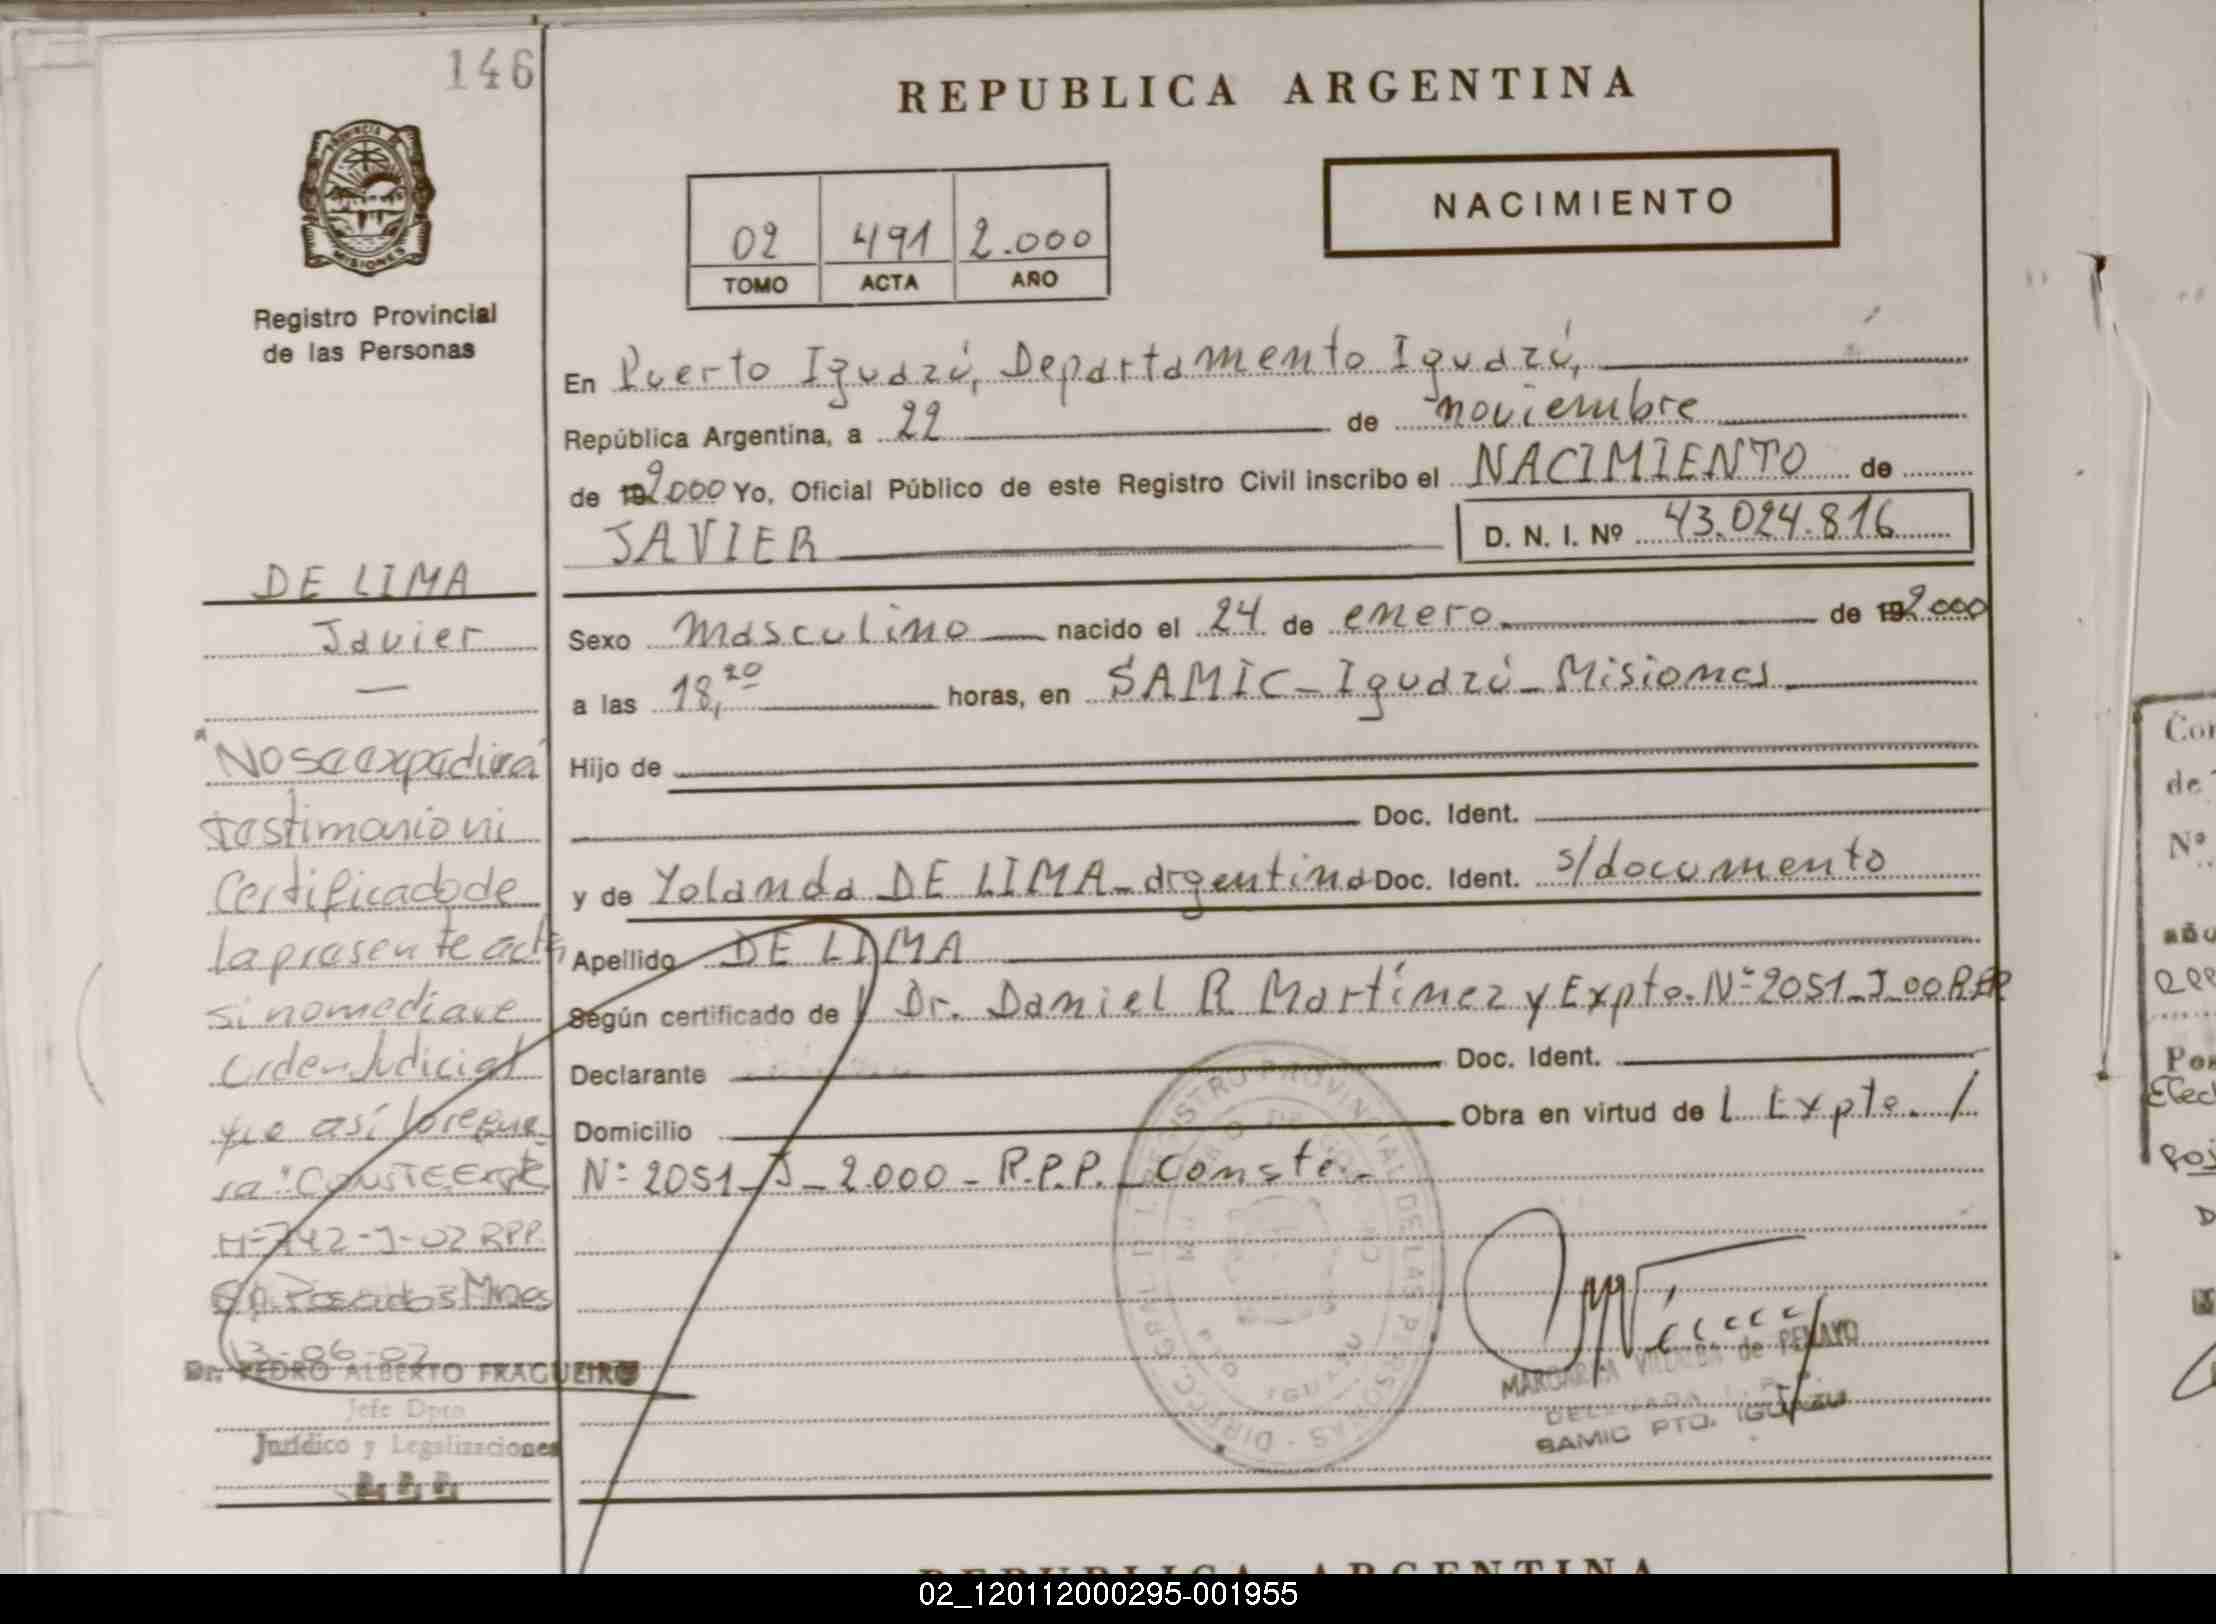 146
REPUBLICA ARGENTINA
PROVINCIA
MISIONES
Registro Provincial
de las Personas
NACIMIENTO
02 491 2.000
TOMO ACTA AÑO
En Puerto Iguazú, Departamento Iguazú,
República Argentina, a 22 de noviembre
de 192000 Yo, Oficial Público de este Registro Civil inscribo el NACIMIENTO de
JAVIER D. N. I. Nº 43.024.816
DE LIMA
Javier
—
"No se expedira
testimonio ni
Certificado de
la presente acta
si no mediare
Orden Judicial
que así lo reque-
ra" CONSTE Expte
Nº 742-J-02 RPP.
Posadas Mnes
13-06-02
Dr. PEDRO ALBERTO FRAGUEIRO
Jefe Dpto
Jurídico y Legalizaciones
Sexo masculino nacido el 24 de enero de 192000
a las 18,20 horas, en SAMIC - Iguazú - Misiones
Hijo de
Doc. Ident.
y de Yolanda DE LIMA - argentina Doc. Ident. s/documento
Apellido DE LIMA
Según certificado de Dr. Daniel R Martínez y Expte. Nº 2051_J_00 R.P.P
Declarante Doc. Ident.
Domicilio Obra en virtud de Expte. /
Nº 2051_J_2.000 - R.P.P. _ Conste.-
REGISTRO PROVINCIAL DE LAS PERSONAS
MARGARITA VILLALBA de PENAYO
DELEGADA R. P.
SAMIC PTO. IGUAZU
REPUBLICA ARGENTINA
Nº
02_120112000295-001955